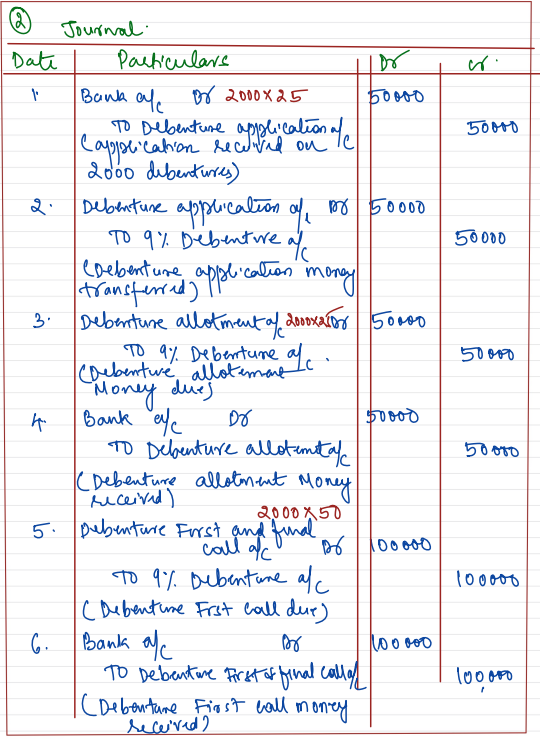 ② Journal.
Date Particulars Dr cr.
1. Bank a/c Dr 2000×25 50000
To Debenture application a/c 50000
(application received on
2000 debentures)
2. Debenture application a/c Dr 50000
To 9% Debenture a/c 50000
(Debenture application money
transferred)
3. Debenture allotment a/c 2000×25 Dr 50000
To 9% Debenture a/c. 50000
(Debenture allotement
Money due)
4. Bank a/c Dr 50000
To Debenture allotment a/c 50000
(Debenture allotment Money
received)
2000×50
5. Debenture First and final
call a/c Dr 100000
To 9% Debenture a/c 100000
(Debenture Frst call due)
6. Bank a/c Dr 100000
To Debenture First & final call a/c 100,000
(Debenture First call money
received)